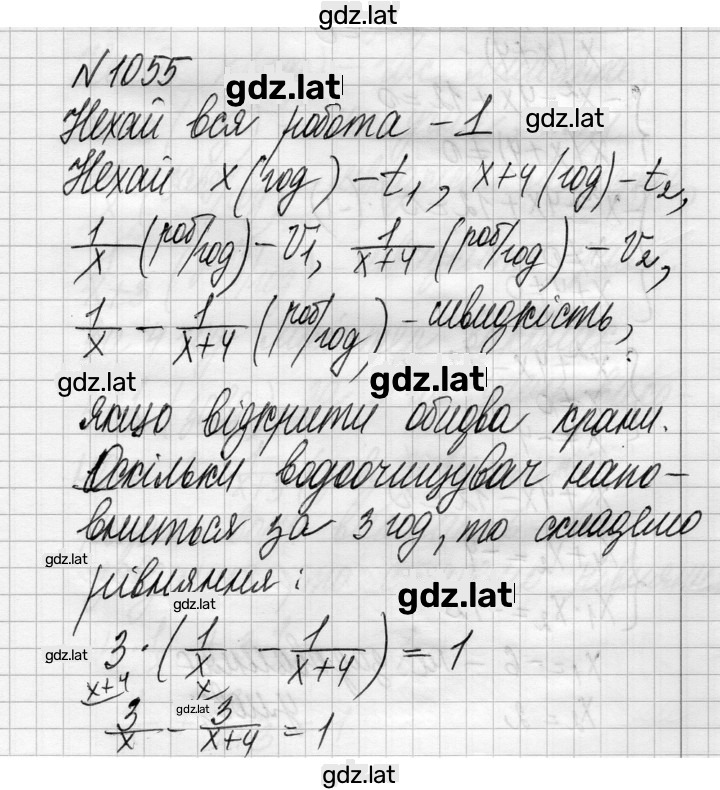 gdz.lat
N 1055
gdz.lat
Нехай вся робота – 1
gdz.lat
Нехай x (год) – t₁, x+4 (год) – t₂,
1/x (роб/год) – v₁, 1/(x+4) (роб/год) – v₂,
1/x – 1/(x+4) (роб/год) – швидкість,
gdz.lat gdz.lat
якщо відкрити обидва крани.
Оскільки водоочищувач напо-
вниться за 3 год, то складемо
gdz.lat
рівняння:
gdz.lat gdz.lat
gdz.lat 3 · (1/x – 1/(x+4)) = 1
x+4 x
gdz.lat
3/x – 3/(x+4) = 1
gdz.lat